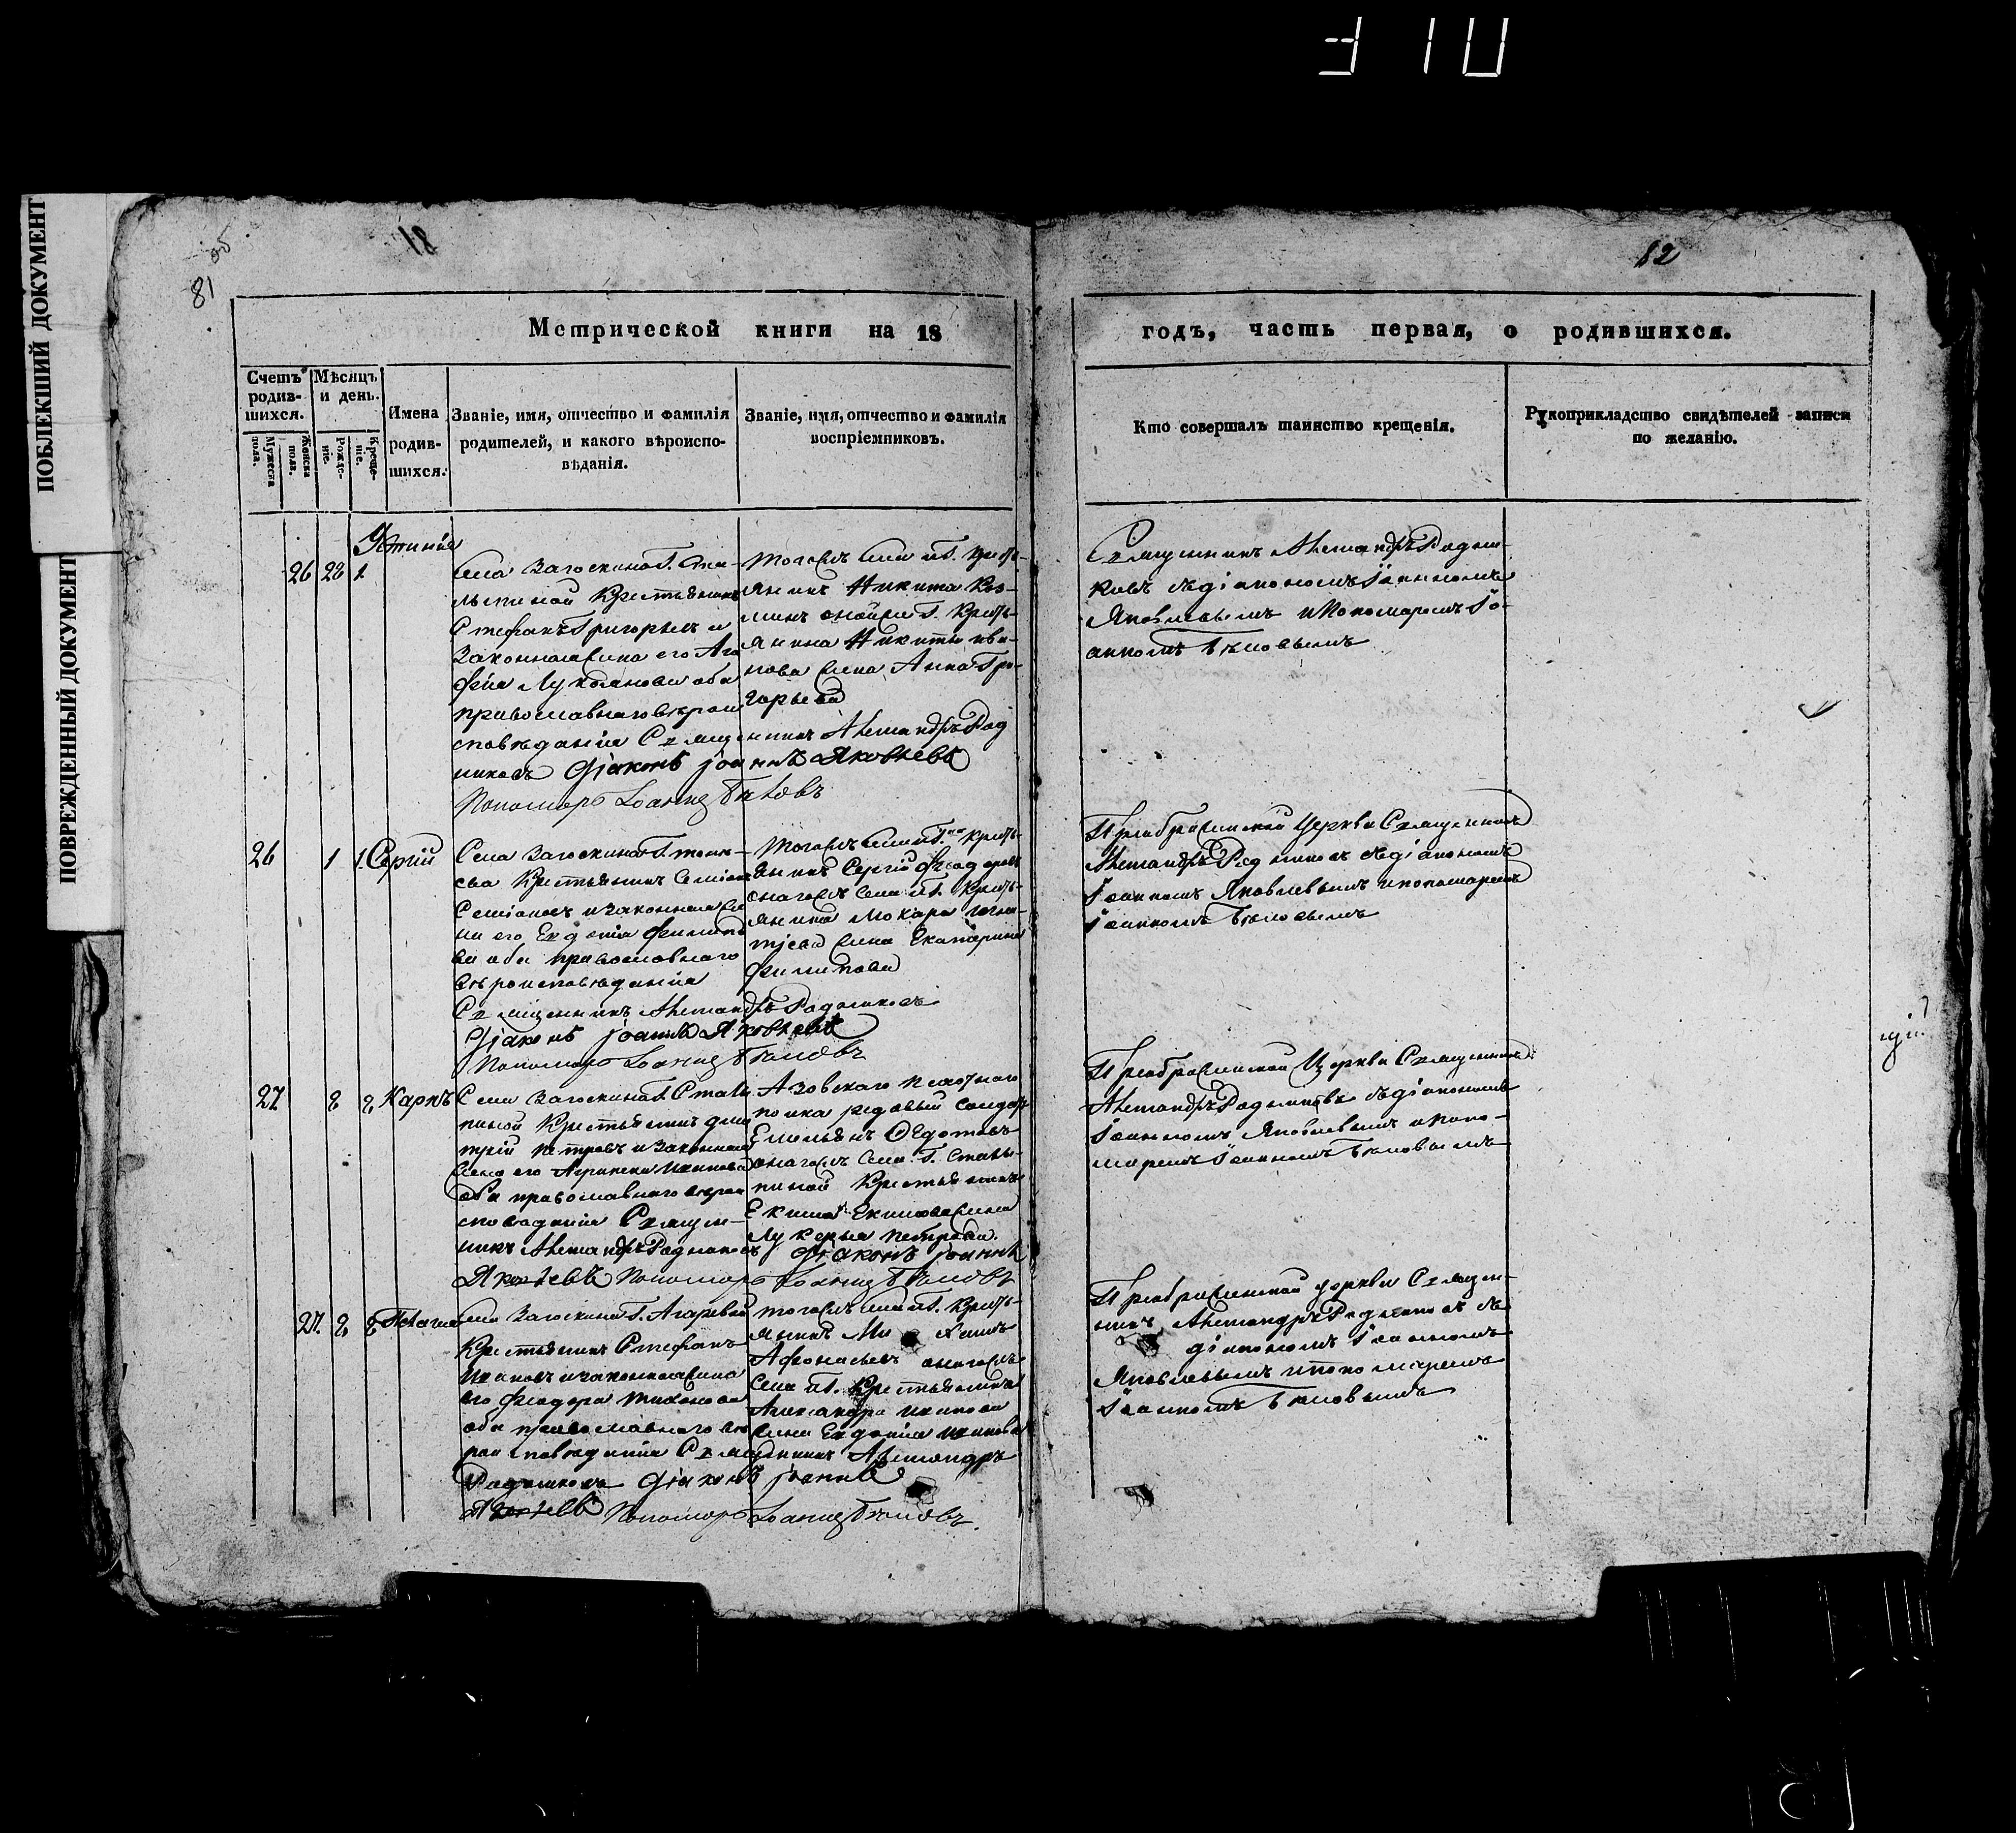 310
ПОБЛЕКШИЙ ДОКУМЕНТ
ПОВРЕЖДЕННЫЙ ДОКУМЕНТ
81 об
81
82
Метрической книги на 18
годъ, часть первая, о родившихся.
Счетъ родив-
шихся.
Мужеска пола.
Женска пола.
Мѣсяцъ
и день.
Рожде-
ніе.
Креще-
ніе.
Имена
родив-
шихся.
Званіе, имя, отчество и фамилія
родителей, и какого вѣроиспо-
вѣданія.
Званіе, имя, отчество и фамилія
воспріемниковъ.
Кто совершалъ таинство крещенія.
Рукоприкладство свидѣтелей записи
по желанію.
26 28 1 Устинія
села Загоскина Г. Ста-
лыпиной Крестьянинъ
Стефанъ Григорьевъ и
Законная жена его Ага
фія Лукоянова оба
православнаго вѣрои
сповѣданія Священникъ Александръ Род
никовъ Діаконъ Іоаннъ Яковлевъ
Пономарь Іоаннъ Бѣловъ
тогожъ села
янинъ Никита Коз-
минъ
янина Никиты Ива-
нова жена Анна Гри-
горьева
Священникъ Александръ Родни-
ковъ съ діакономъ Іоанномъ
Яковлевымъ и Пономаремъ Іо-
анномъ Бѣловымъ
26 1 1 Сергій
Села Загоскина Г.
Крестьянинъ Семіонъ
Семіоновъ и законная же
на его Евдокія Филипо
ва оба православнаго
вѣроисповѣданія
Священникъ Александръ Родниковъ
Діаконъ Іоаннъ Яковлевъ
Пономарь Іоаннъ Бѣловъ
тогожъ села
янинъ Сергій Феодоровъ
онагожъ села
янина Макара Игна-
тіева жена Екатерина
Филипова
Преображенской Церкви Священникъ
Александръ Родниковъ съ діакономъ
Іоанномъ Яковлевымъ и пономаремъ
Іоанномъ Бѣловымъ
27 2 2 Карпъ
Села Загоскина Г. Сталы
пиной Крестьянинъ Дми
трій Петровъ и Законная
жена его Агрипена Иванова
оба православнаго вѣрои
сповѣданія Священ-
никъ Александръ Родниковъ Діаконъ Іоаннъ
Яковлевъ Пономарь Іоаннъ Бѣловъ
Азовскаго пехотнаго
полка редовый
Емельянъ Федотовъ
онагожъ Села Г. Сталы-
пиной Крестьянина
Екима Екимова жена
Лукерья Петрова.
Преображенской Церкви Священникъ
Александръ Родниковъ съ діакономъ
Іоанномъ Яковлевымъ и Поно-
маремъ Іоанномъ Бѣловымъ
27. 2 2 Пелагия
села Загоскина Г. Агаревой
Крестьянинъ Стефанъ
Ивановъ и законная жена
его Феодора Тихонова
оба православнаго вѣ
роисповѣданія Священникъ Александръ
Родниковъ Діаконъ Іоаннъ
Яковлевъ Пономарь Іоаннъ Бѣловъ.
тогожъ села
янинъ
Афонасьевъ онагожъ
Села Крестьянина
Александра Иванова
жена Евдокія Иванова
Преображенской церкви Священ-
никъ Александръ Родниковъ съ
діакономъ Іоанномъ
Яковлевымъ и пономаремъ
Іоанномъ Бѣловымъ